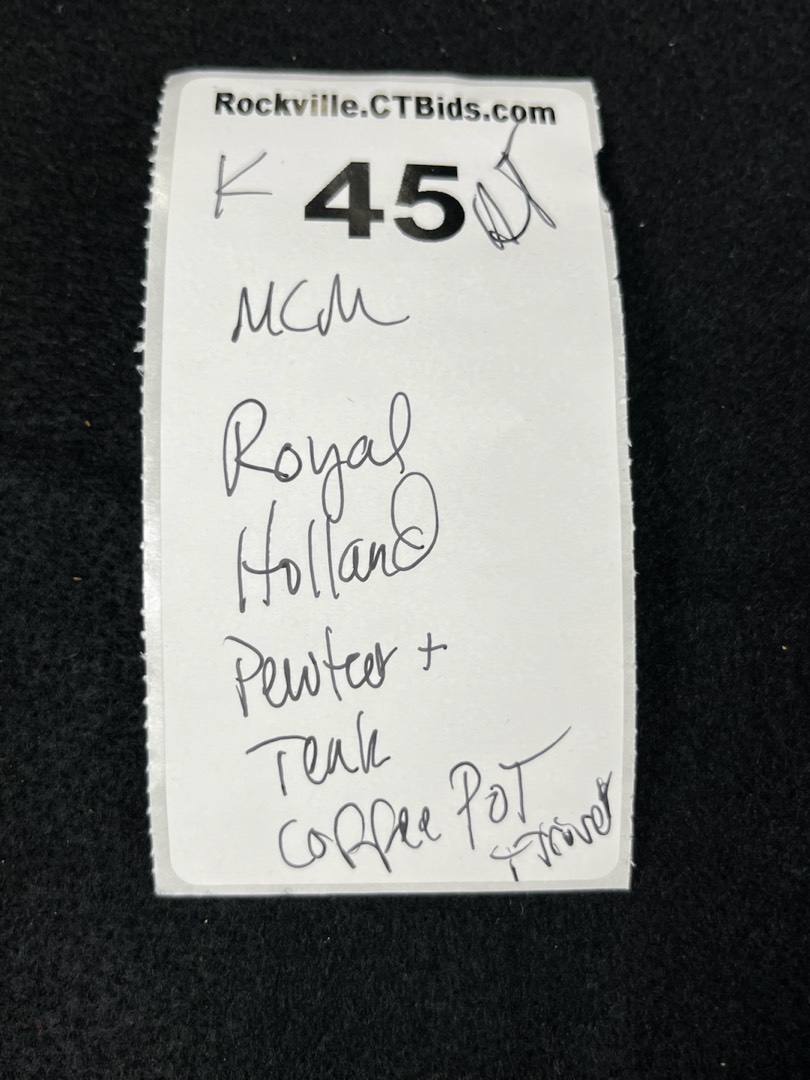 Rockville.CTBids.com
K 45
MCM
Royal
Holland
Pewter +
Teak
Coffee Pot
+ Trivet